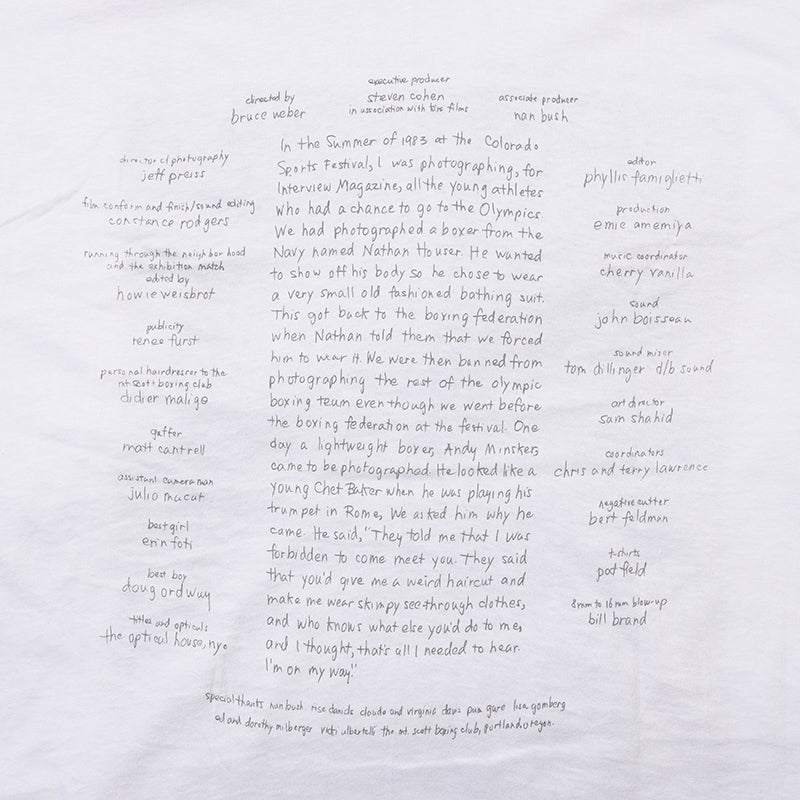 executive producer
steven cohen
in association with kira films
directed by
bruce weber
associate producer
nan bush
director of photography
jeff preiss
film conform and finish/sound editing
constance rodgers
running through the neighborhood
and the exhibition match
edited by
howie weisbrot
publicity
renee furst
personal hairdresser to the
mt. scott boxing club
didier maligo
gaffer
matt cantrell
assistant cameraman
julio macat
best girl
erin foti
best boy
doug ordway
titles and opticals
the optical house, nyc
In the Summer of 1983 at the Colorado
Sports Festival, I was photographing, for
Interview Magazine, all the young athletes
who had a chance to go to the Olympics.
We had photographed a boxer from the
Navy named Nathan Houser. He wanted
to show off his body so he chose to wear
a very small old fashioned bathing suit.
This got back to the boxing federation
when Nathan told them that we forced
him to wear it. We were then banned from
photographing the rest of the olympic
boxing team even though we went before
the boxing federation at the festival. One
day a lightweight boxer, Andy Minsker,
came to be photographed. He looked like a
young Chet Baker when he was playing his
trumpet in Rome, We asked him why he
came. He said, "They told me that I was
forbidden to come meet you. They said
that you'd give me a weird haircut and
make me wear skimpy see-through clothes,
and who knows what else you'd do to me,
and I thought, that's all I needed to hear.
I'm on my way."
editor
phyllis famiglietti
production
emie amemiya
music coordinator
cherry vanilla
sound
john boisseau
sound mixer
tom dillinger d/b sound
art director
sam shahid
coordinators
chris and terry lawrence
negative cutter
bert feldman
t-shirts
pod field
8mm to 16mm blow-up
bill brand
special thanks nan bush rise daniels claude and virginia lisa gomberg
ed and dorothy milberger vicki the mt. scott boxing club, portland, oregon.